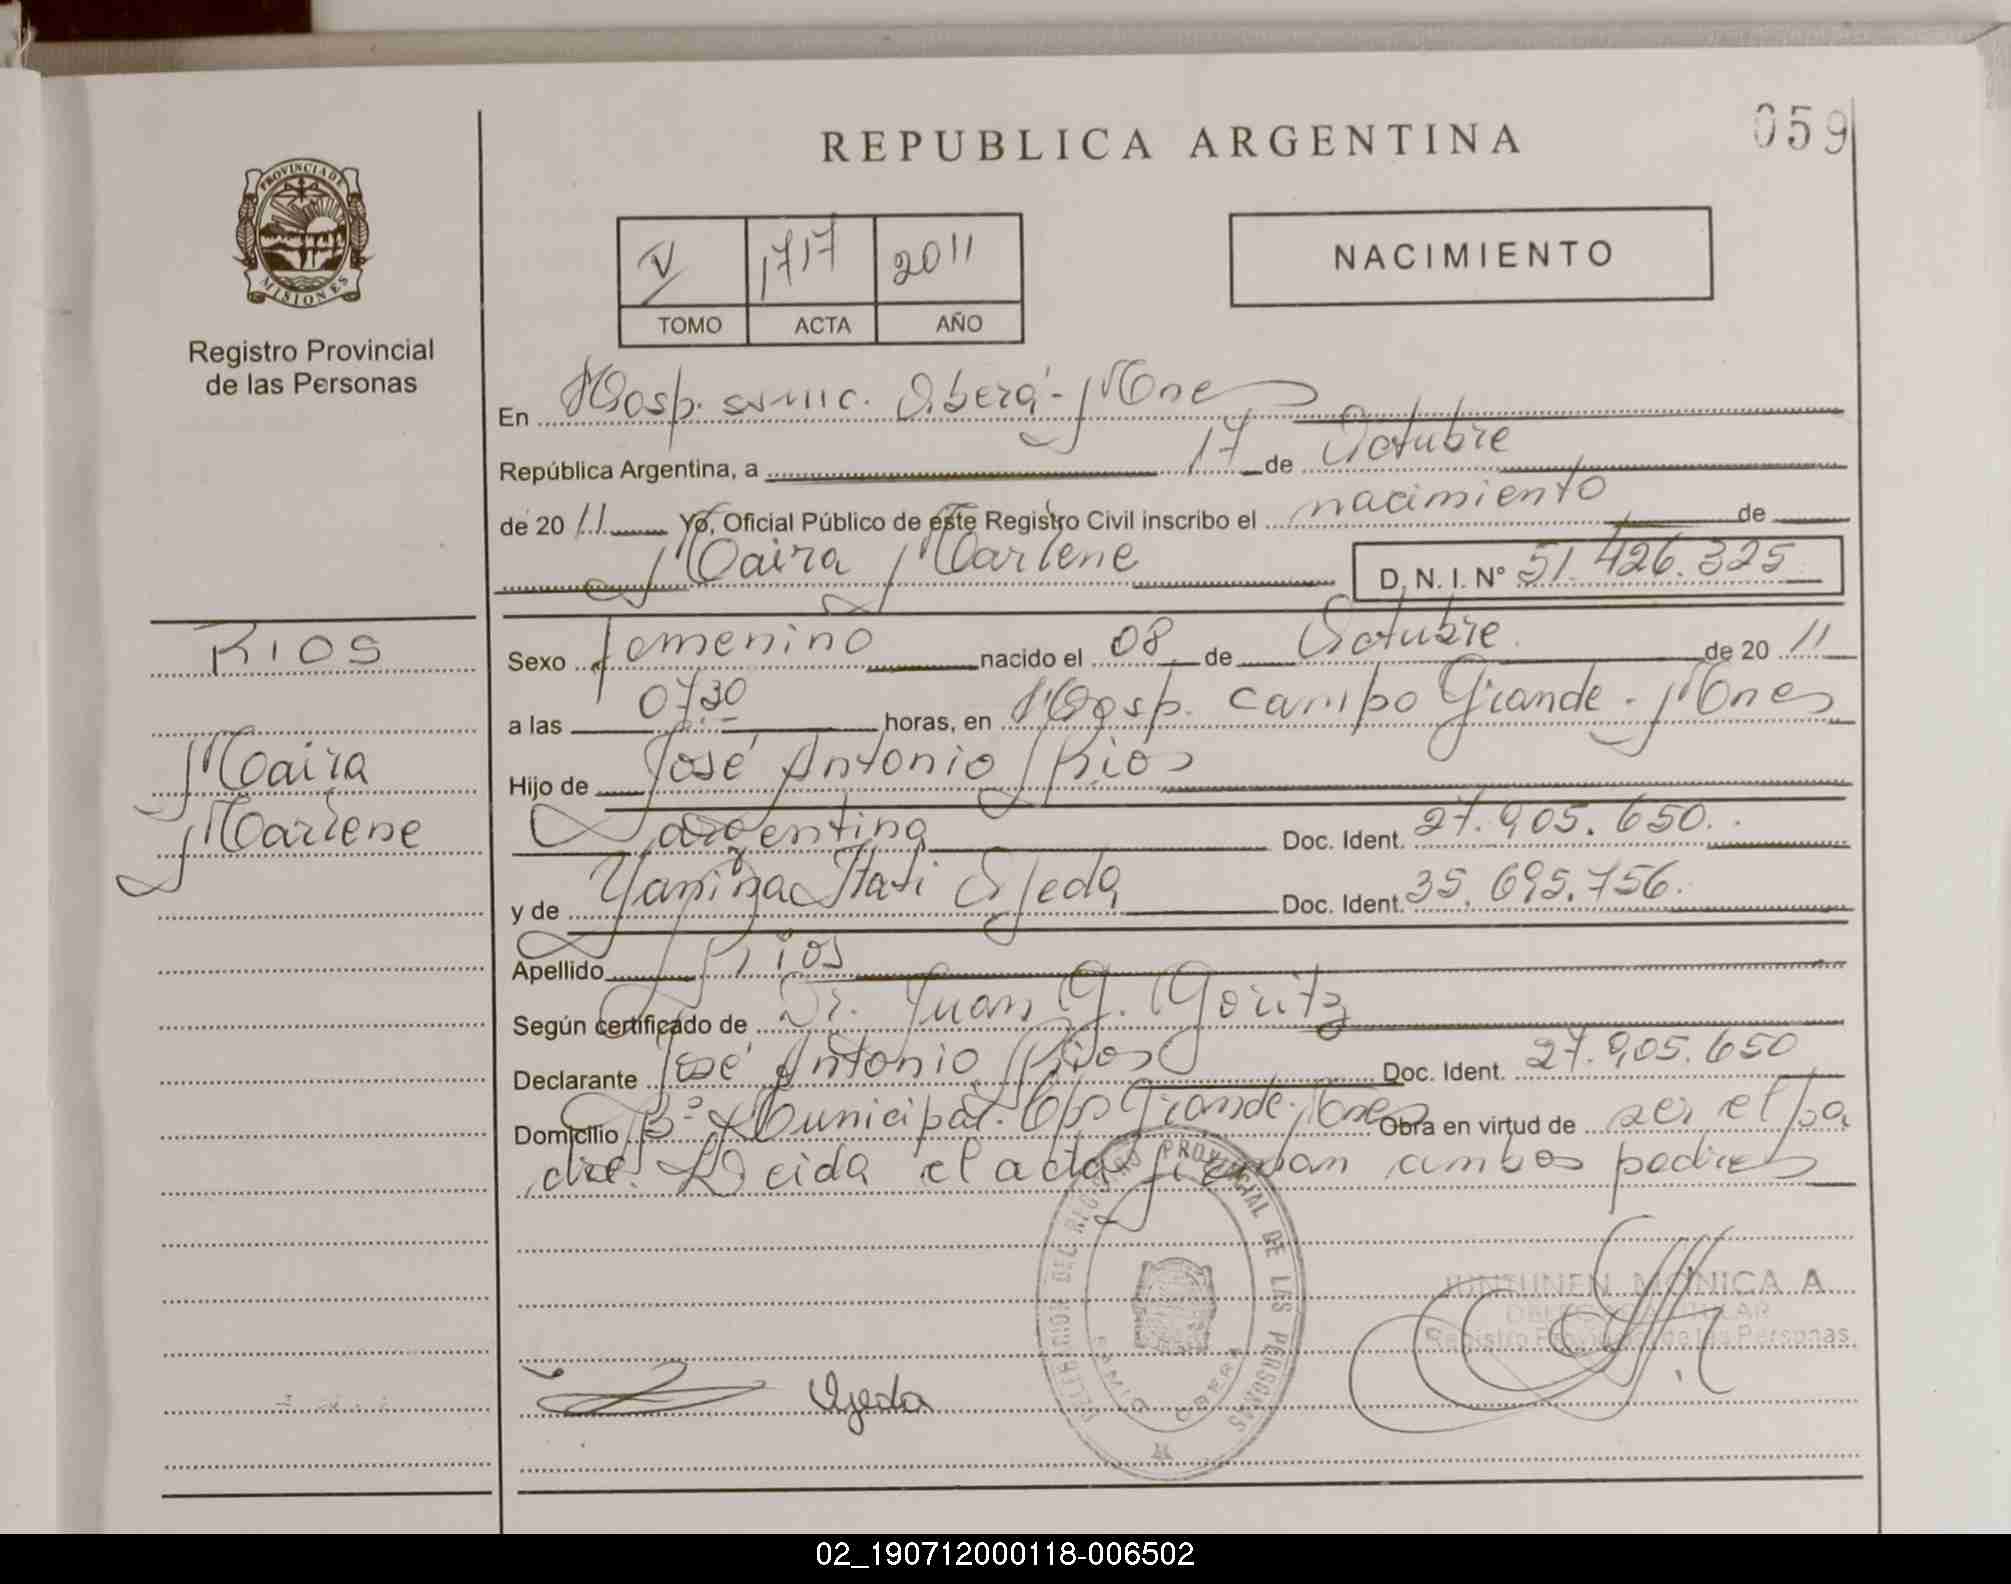 REPUBLICA ARGENTINA
059
PROVINCIA DE MISIONES
Registro Provincial
de las Personas
V 1717 2011
TOMO ACTA AÑO
NACIMIENTO
En Hosp. ssmic. Oberá - Mnes
República Argentina, a 17 de Octubre
de 20 11 Yo, Oficial Público de este Registro Civil inscribo el nacimiento de
Maira Marlene D.N.I. Nº 51.426.325
RIOS
Maira
Marlene
Sexo femenino nacido el 08 de Octubre de 20 11
a las 07:30 horas, en Hosp. Campo Grande - Mnes
Hijo de José Antonio Rios
argentino Doc. Ident. 27.905.650.
y de Yanina Itati Ojeda Doc. Ident. 35.695.756.
Apellido Rios
Según certificado de Dr. Juan G. Goritz
Declarante José Antonio Rios Doc. Ident. 27.905.650
Domicilio Bº Municipal. Cpo Grande. Mnes Obra en virtud de ser el pa
dre. Leida el acta firman ambos padres
DELEGACION DEL REGISTRO PROVINCIAL DE LAS PERSONAS
OBERA
JUNTUNEN MONICA A
DELEGADA TITULAR
Registro Provincial de las Personas
Ojeda
02_190712000118-006502